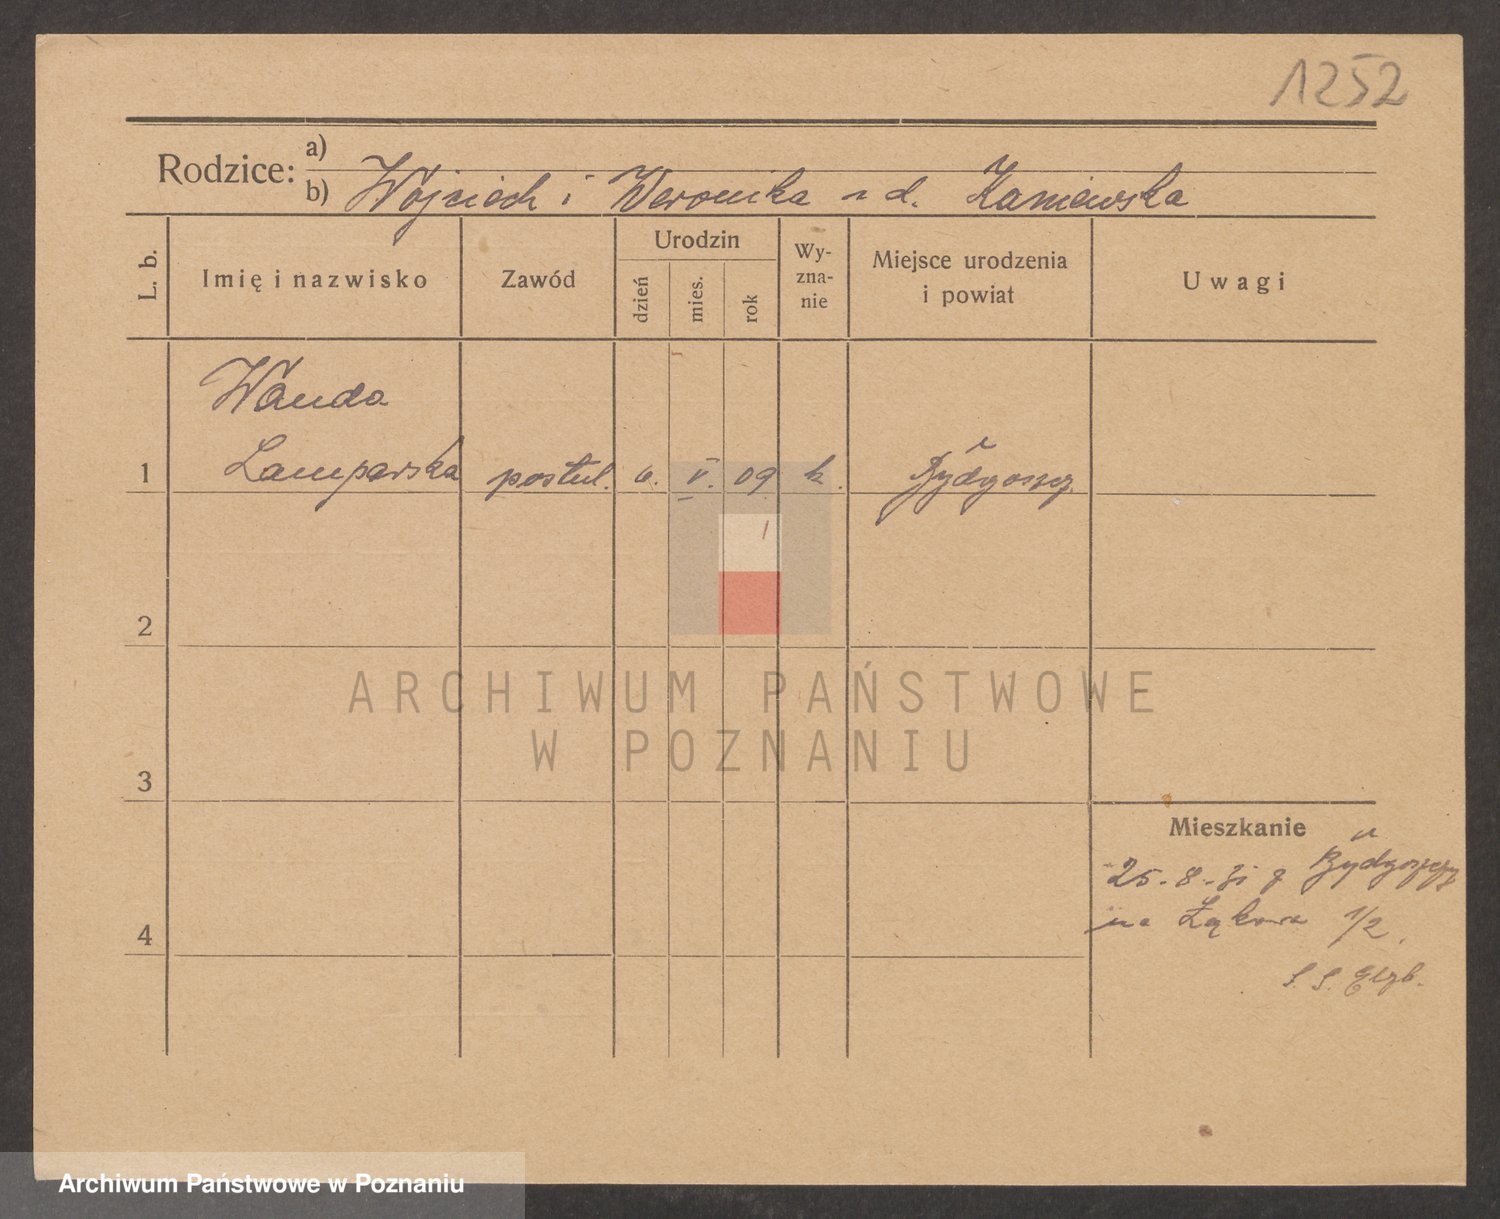 1252
Rodzice:
a)
b) Wojciech i Weronika z d. Kaniewska
L. b.
Imię i nazwisko
Zawód
Urodzin
dzień
mies.
rok
Wy-
zna-
nie
Miejsce urodzenia
i powiat
Uwagi
Wanda
1 Lamparska postul. 6. V. 09 k. Bydgoszcz
2
3
4
Mieszkanie
25. 8. 31 z Bydgoszczy
na Łąkowa 1/2.
S. S. Elżb.
ARCHIWUM PAŃSTWOWE
W POZNANIU
Archiwum Państwowe w Poznaniu